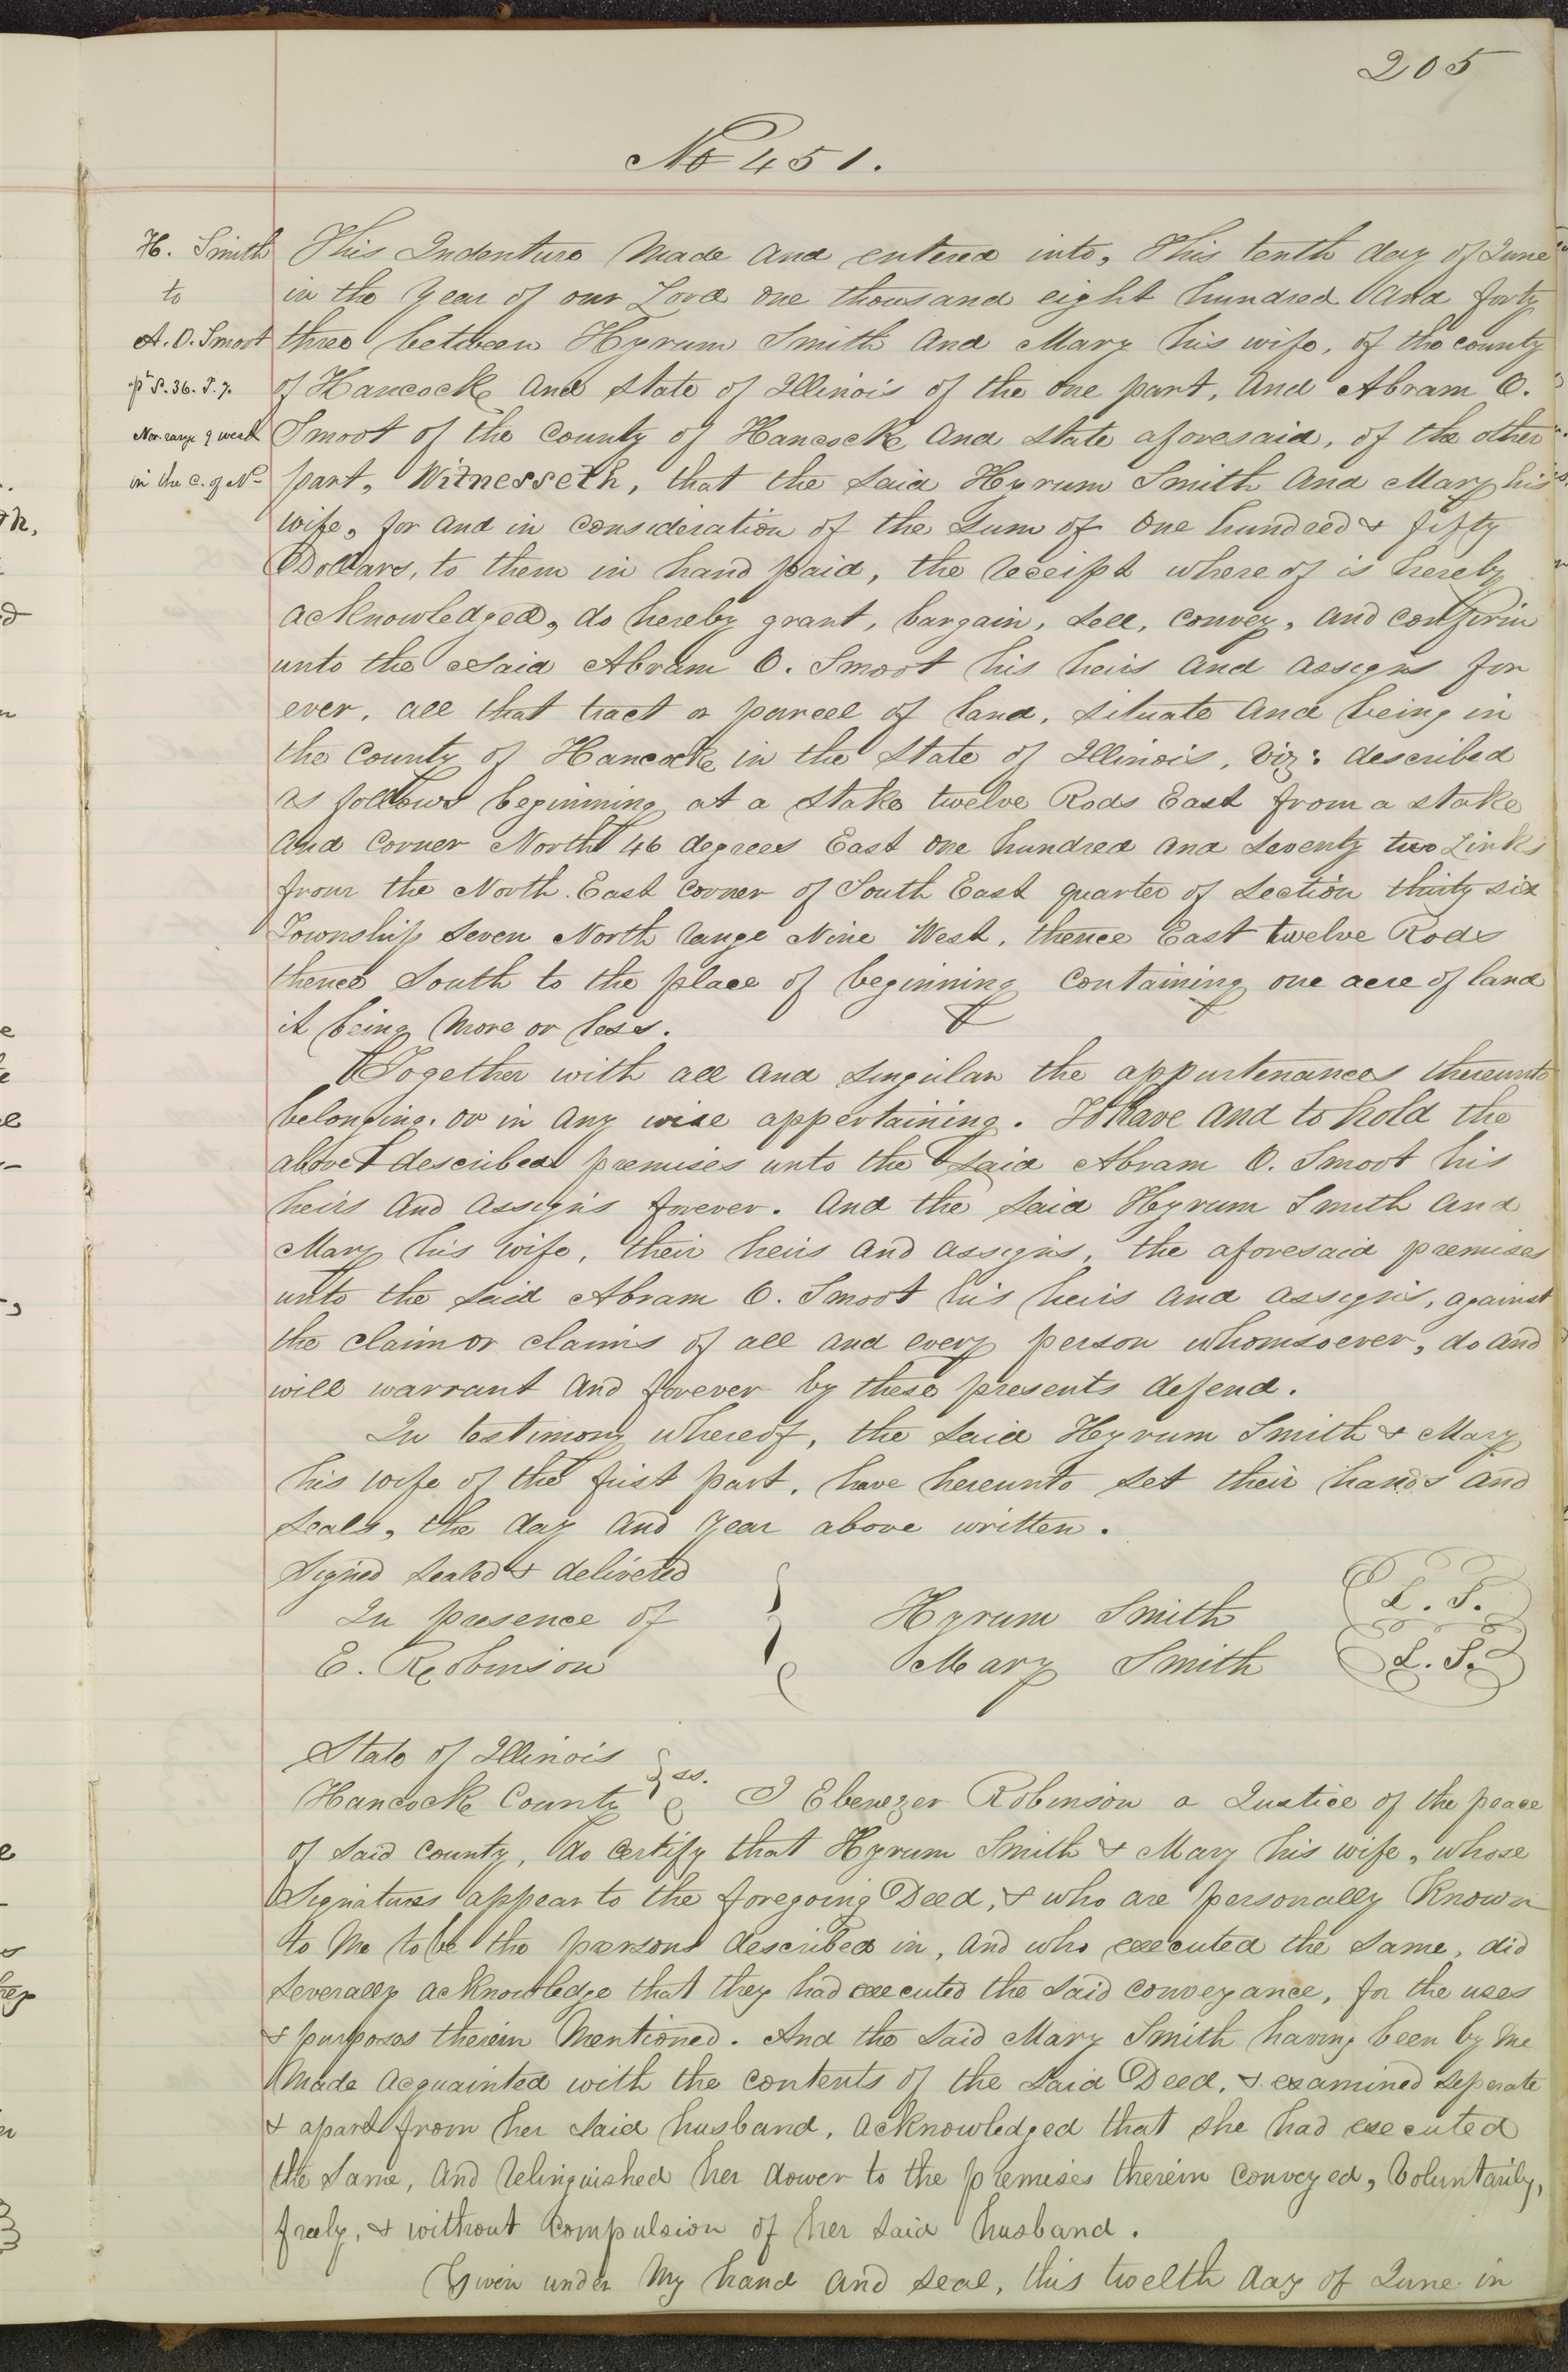 205
No 451.
H. Smith
to
A. O. Smoot
pt S. 36. T. 7.
Nor. range 9 west
in the C. of N-
This Indenture Made and entered into, This tenth day of June
in the Year of our Lord one thousand eight hundred and forty
three between Hyrum Smith and Mary his wife, of the county
of Hancock and State of Illinois of the one part, And Abram O.
Smoot of the County of Hancock and State aforesaid, of the other
part, Witnesseth, that the Said Hyrum Smith and Mary his
wife, for and in consideration of the Sum of One hundred & fifty
Dollars, to them in hand paid, the receipt where of is hereby
acknowledged, do hereby grant, bargain, Sell, convey, and confirm
unto the Said Abram O. Smoot his heirs and assigns for
ever, all that tract or parcel of land, situate and being in
the County of Hancock in the State of Illinois, Viz: described
as follows beginning at a Stake twelve Rods East from a stake
and Corner North 46 degrees East one hundred and Seventy two Links
from the North East Corner of South East quarter of Section thirty six
Township Seven North range Nine West, thence East twelve Rods
thence South to the place of beginning containing one acre of land
it being More or less.
Together with all and singular the appurtenances thereunto
belonging. or in any wise appertaining. To have and to hold the
above described premises unto the Said Abram O. Smoot his
heirs and assigns forever. And the Said Hyrum Smith and
Mary his wife, their heirs and assigns, the aforesaid premises
unto the Said Abram O. Smoot his heirs and assigns, against
the claim or claims of all and every person whomsoever, do and
will warrant and forever by these presents defend.
In testimony whereof, the Said Hyrum Smith & Mary
his wife of the first part, have hereunto Set their hands and
Seals, the day and Year above written.
Signed Sealed & delivered
In presence of
E. Robinson
Hyrum Smith L. S.
Mary Smith L. S.
State of Illinois
Hancock County ss. I Ebenezer Robinson a Justice of the peace
of Said County, do certify that Hyrum Smith & Mary his wife, whose
Signatures appear to the foregoing Deed, & who are personally Known
to Me to be the persons described in, and who executed the Same, did
Severally acknowledge that they had executed the Said conveyance, for the uses
& purposes therein Mentioned. And the Said Mary Smith having been by Me
Made acquainted with the contents of the Said Deed, & examined Seperate
& apart from her Said husband, acknowledged that she had executed
the Same, and relinquished her dower to the premises therein conveyed, Voluntarily,
freely, & without compulsion of her Said husband.
Given under My hand and Seal, this twelth day of June in